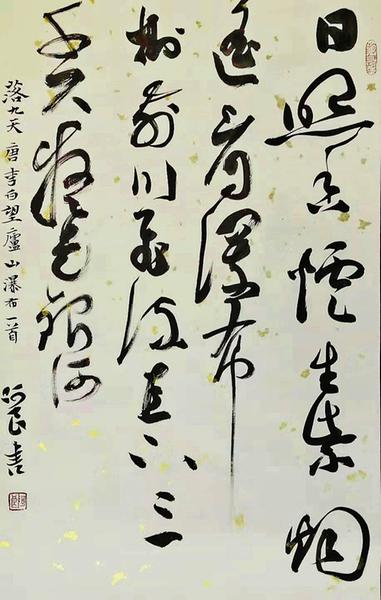 日照香爐生紫烟
遥看瀑布
掛前川飛流直下三
千尺疑是銀河
落九天 唐李白望廬山瀑布一首
書